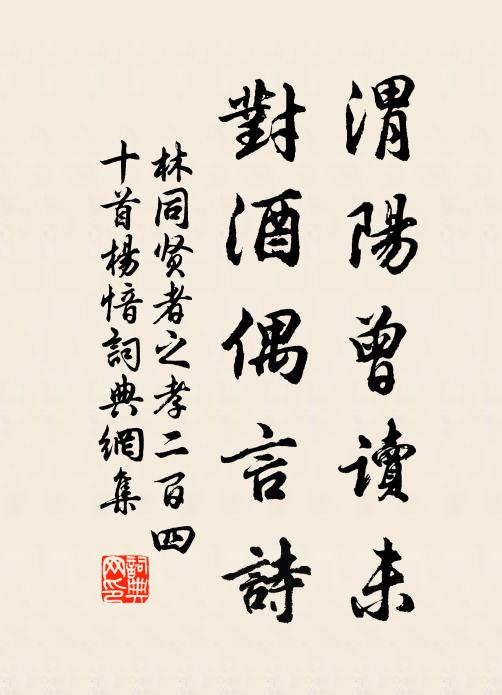 渭陽曾讀未
對酒偶言詩
林同贤者之孝二百四
十首楊愔詞典網集
詞典网印